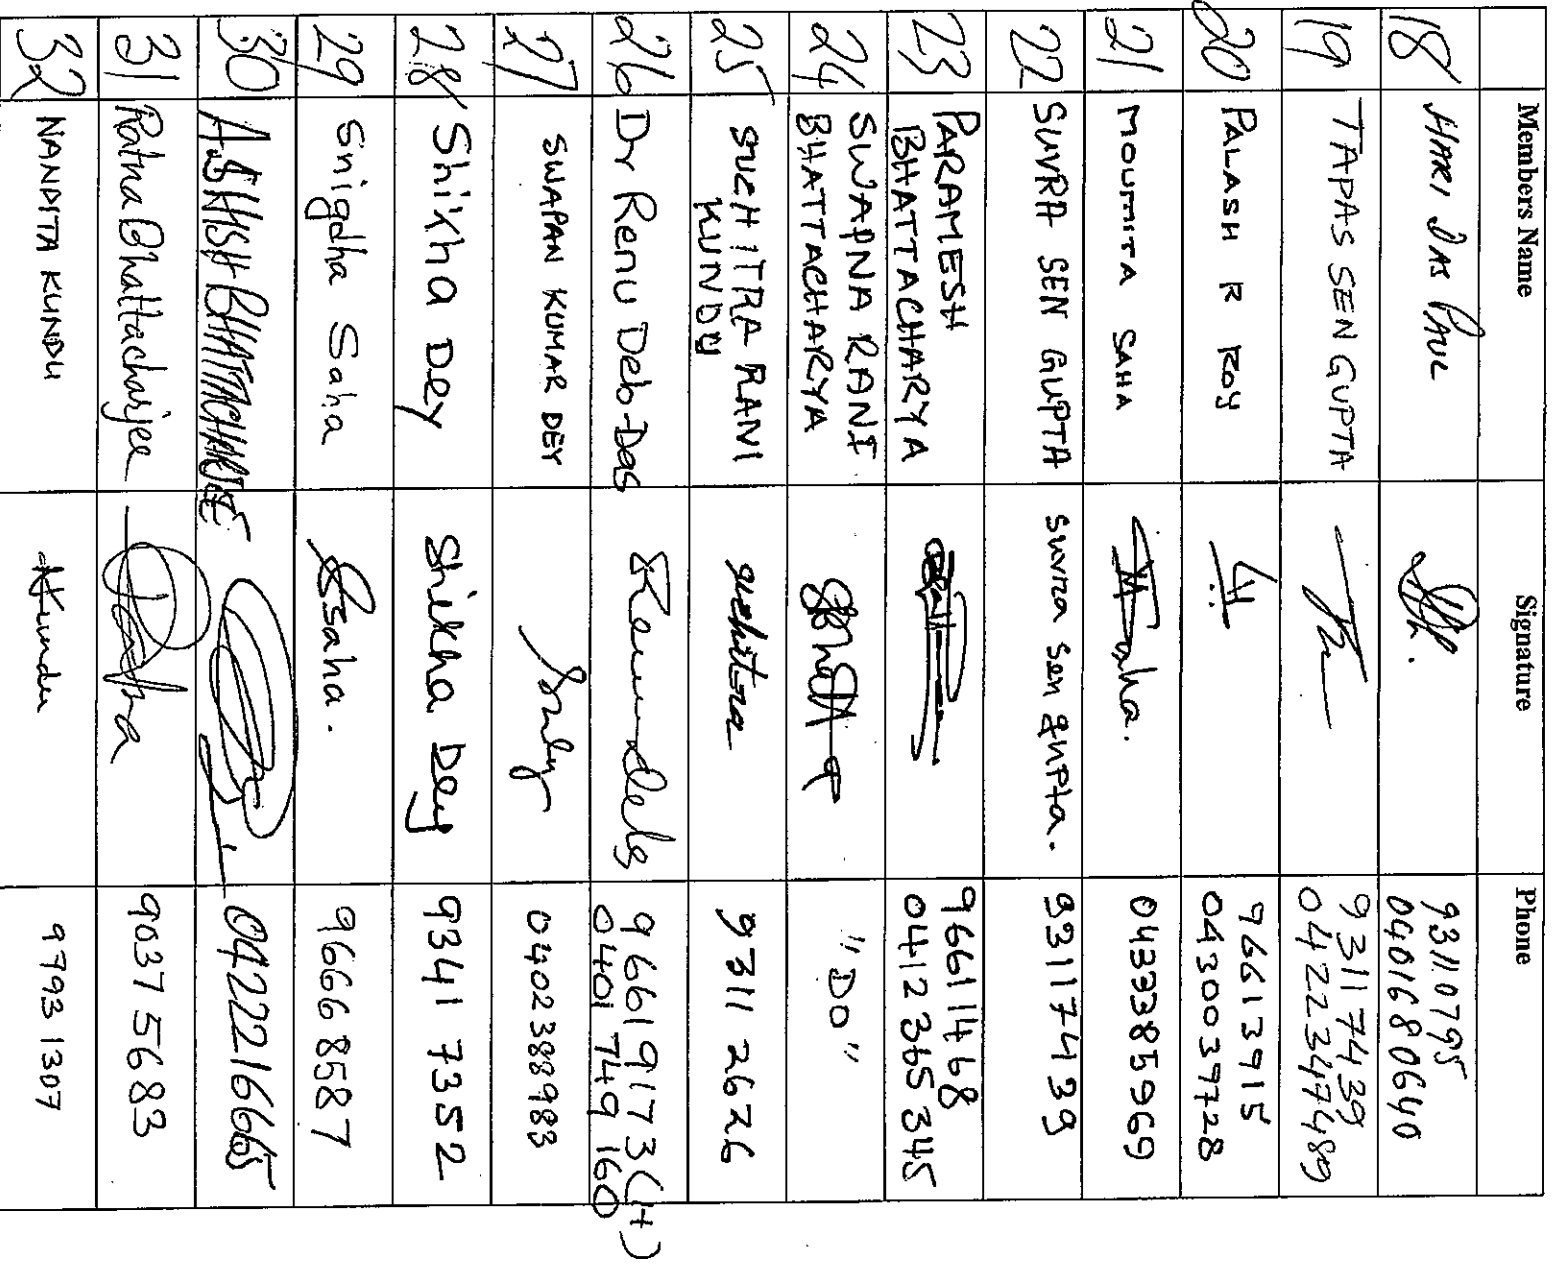 Members Name Signature Phone
18 HARI DAS PAUL 93110795
0401680640
19 TAPAS SEN GUPTA 93117439
0422347489
20 PALASH R ROY 96613915
0430039728
21 MOUMITA SAHA 0433385969
22 SUVRA SEN GUPTA suvra sen gupta. 93117439
23 PARAMESH
BHATTACHARYA 96611468
0412365345
24 SWAPNA RANI
BHATTACHARYA "DO"
25 SUCHITRA RANI
KUNDU suchitra 9311 2626
26 Dr Renu Deb-Das Renu Deb 96619173(H)
0401 749 160
27 SWAPAN KUMAR DEY 0402388983
28 Shikha Dey Shikha Dey 9341 7352
29 Snigdha Saha Ssaha. 9666 8587
30 ASHISH BHATTACHARJEE 0422216665
31 Ratna Bhattacharjee Ratna 9037 5683
32 NANDITA KUNDU NKundu 9793 1307